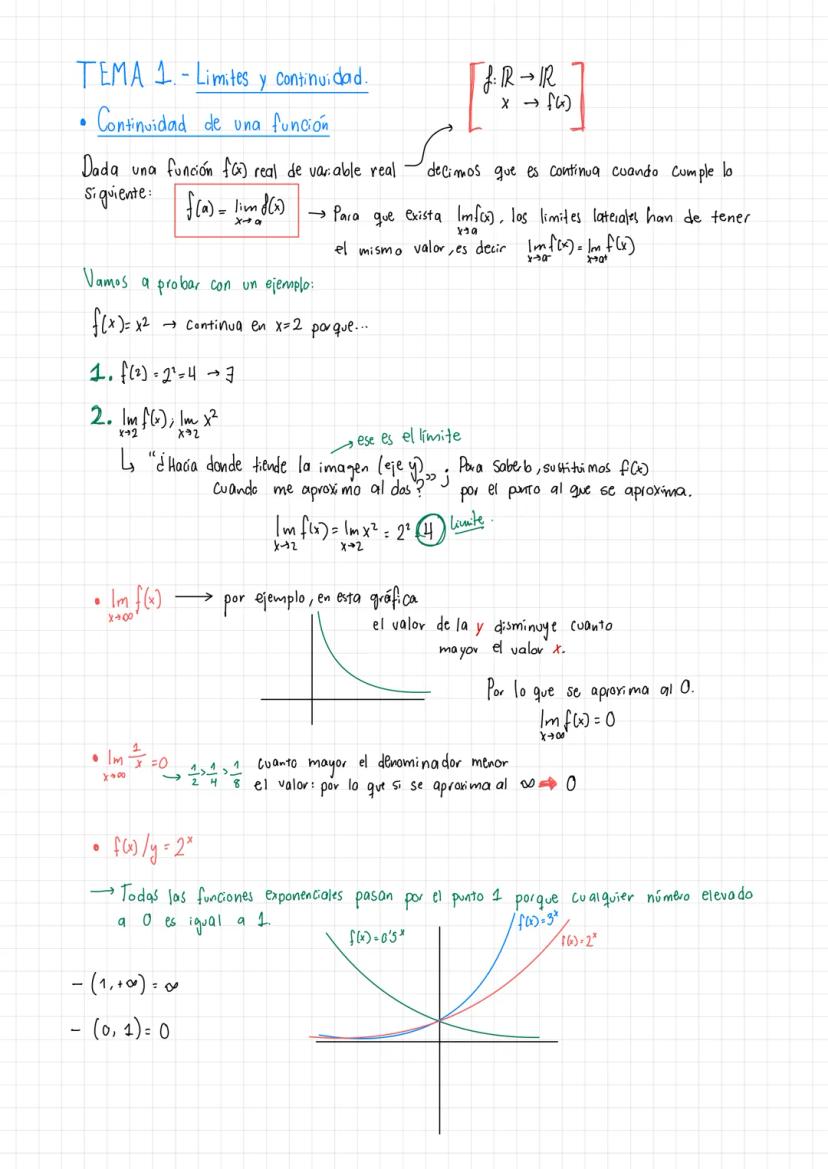 TEMA 1.- Limites y continuidad.
f: ℝ → ℝ
x → f(x)
• Continuidad de una función
Dada una función f(x) real de variable real decimos que es continua cuando cumple lo
siguiente:
f(a) = lim f(x)
x→a
→ Para que exista lim f(x), los limites laterales han de tener
x→a
el mismo valor, es decir lim f(x) = lim f(x)
x→a⁻ x→a⁺
Vamos a probar con un ejemplo:
f(x) = x² → Continua en x=2 porque...
1. f(2) = 2² = 4 → ∃
2. lim f(x); lim x²
x→2 x→2
→ ese es el límite
↳ "¿Hacia donde tiende la imagen (eje y)
cuando me aproximo al dos?" ;
Para saberlo, sustituimos f(x)
por el punto al que se aproxima.
lim f(x) = lim x² = 2² = 4 limite.
x→2 x→2
• lim f(x) → por ejemplo, en esta gráfica
x→∞
el valor de la y disminuye cuanto
mayor el valor x.
Por lo que se aproxima al 0.
lim f(x) = 0
x→∞
• lim 1/x = 0
x→∞
→ 1/2 > 1/4 > 1/8
cuanto mayor el denominador menor
el valor: por lo que si se aproxima al ∞ → 0
• f(x)/y = 2ˣ
→ Todas las funciones exponenciales pasan por el punto 1 porque cualquier número elevado
a 0 es igual a 1.
f(x) = 0'5ˣ
f(x) = 3ˣ
f(x) = 2ˣ
- (1, +∞) = ∞
- (0, 1) = 0